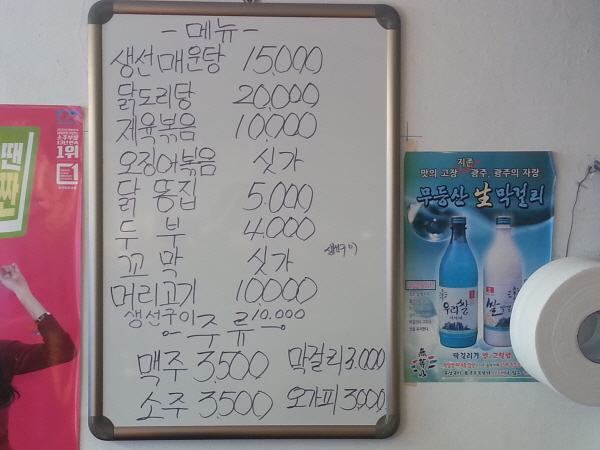 - 메뉴 -
생선매운탕 15,000
닭도리탕 20,000
제육볶음 10,000
오징어볶음 싯가
닭 똥집 5.000
두 부 4.000
꼬 막 싯가
생선구이
머리고기 10000
생선구이 10.000
주류
맥주 3,500 막걸리 3.000
소주 3,500 오가피 3,000
1위
지존
맛의 고장 광주, 광주의 자랑
무등산 生 막걸리
우리쌀
쌀